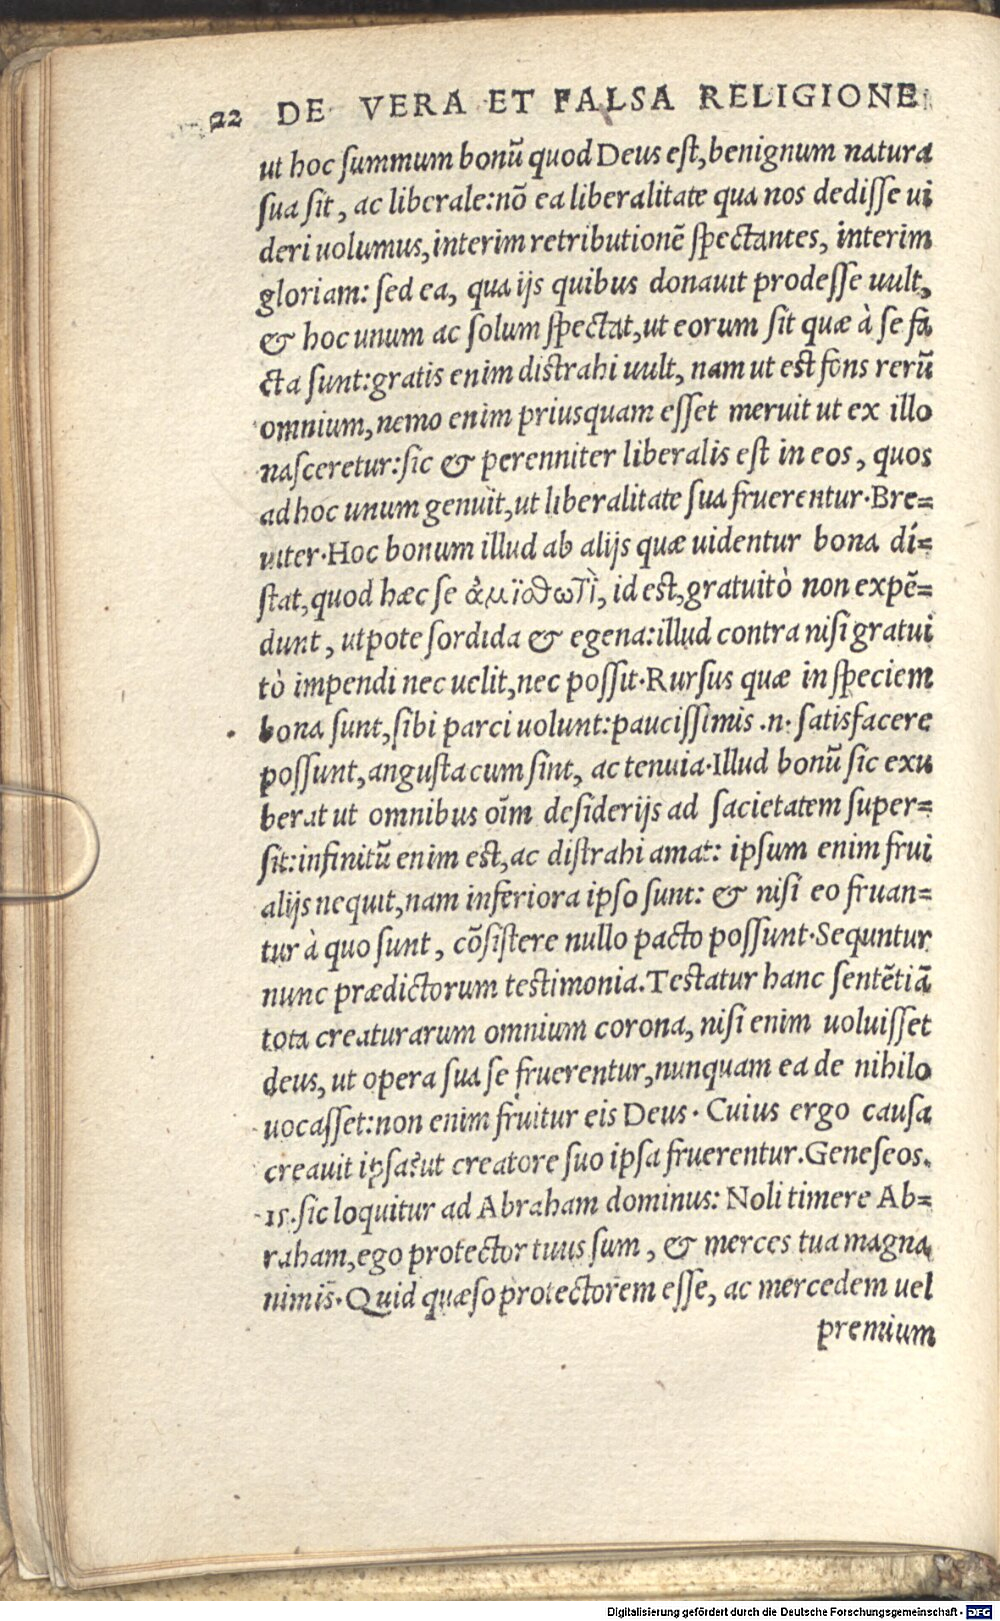 22 DE VERA ET FALSA RELIGIONE
ut hoc ſummum bonũ quod Deus eſt, benignum natura
ſua ſit, ac liberale: nõ ea liberalitate qua nos dediſſe ui
deri uolumus, interim retributionẽ ſpectantes, interim
gloriam: ſed ea, qua ijs quibus donauit prodeſſe uult,
& hoc unum ac ſolum ſpectat, ut eorum ſit quæ à ſe fa
cta ſunt: gratis enim diſtrahi uult, nam ut eſt fons rerũ
omnium, nemo enim priusquam eſſet meruit ut ex illo
naſceretur: ſic & perenniter liberalis eſt in eos, quos
ad hoc unum genuit, ut liberalitate ſua fruerentur. Bre=
uiter. Hoc bonum illud ab alijs quæ uidentur bona di=
ſtat, quod hæc ſe ἀμϊσθωτὶ, id eſt, gratuitò non expẽ=
dunt, utpote ſordida & egena: illud contra niſi gratui
tò impendi nec uelit, nec poſſit. Rurſus quæ in ſpeciem
bona ſunt, ſibi parci uolunt: pauciſſimis .n. ſatisfacere
poſſunt, anguſta cum ſint, ac tenuia. Illud bonũ ſic exu
berat ut omnibus oĩm deſiderijs ad ſacietatem ſuper=
ſit: infinitũ enim eſt, ac diſtrahi amat: ipſum enim frui
alijs nequit, nam inferiora ipſo ſunt: & niſi eo fruan=
tur à quo ſunt, cõſiſtere nullo pacto poſſunt. Sequntur
nunc prædictorum teſtimonia. Teſtatur hanc ſentẽtiã
tota creaturarum omnium corona, niſi enim uoluiſſet
deus, ut opera ſua ſe fruerentur, nunquam ea de nihilo
uocaſſet: non enim fruitur eis Deus. Cuius ergo cauſa
creauit ipſa? ut creatore ſuo ipſa fruerentur. Geneſeos.
15. ſic loquitur ad Abraham dominus: Noli timere Ab=
raham, ego protector tuus ſum, & merces tua magna
nimis̃. Quid quæſo protectorem eſſe, ac mercedem uel
premium
Digitalisierung gefördert durch die Deutsche Forschungsgemeinschaft - DFG